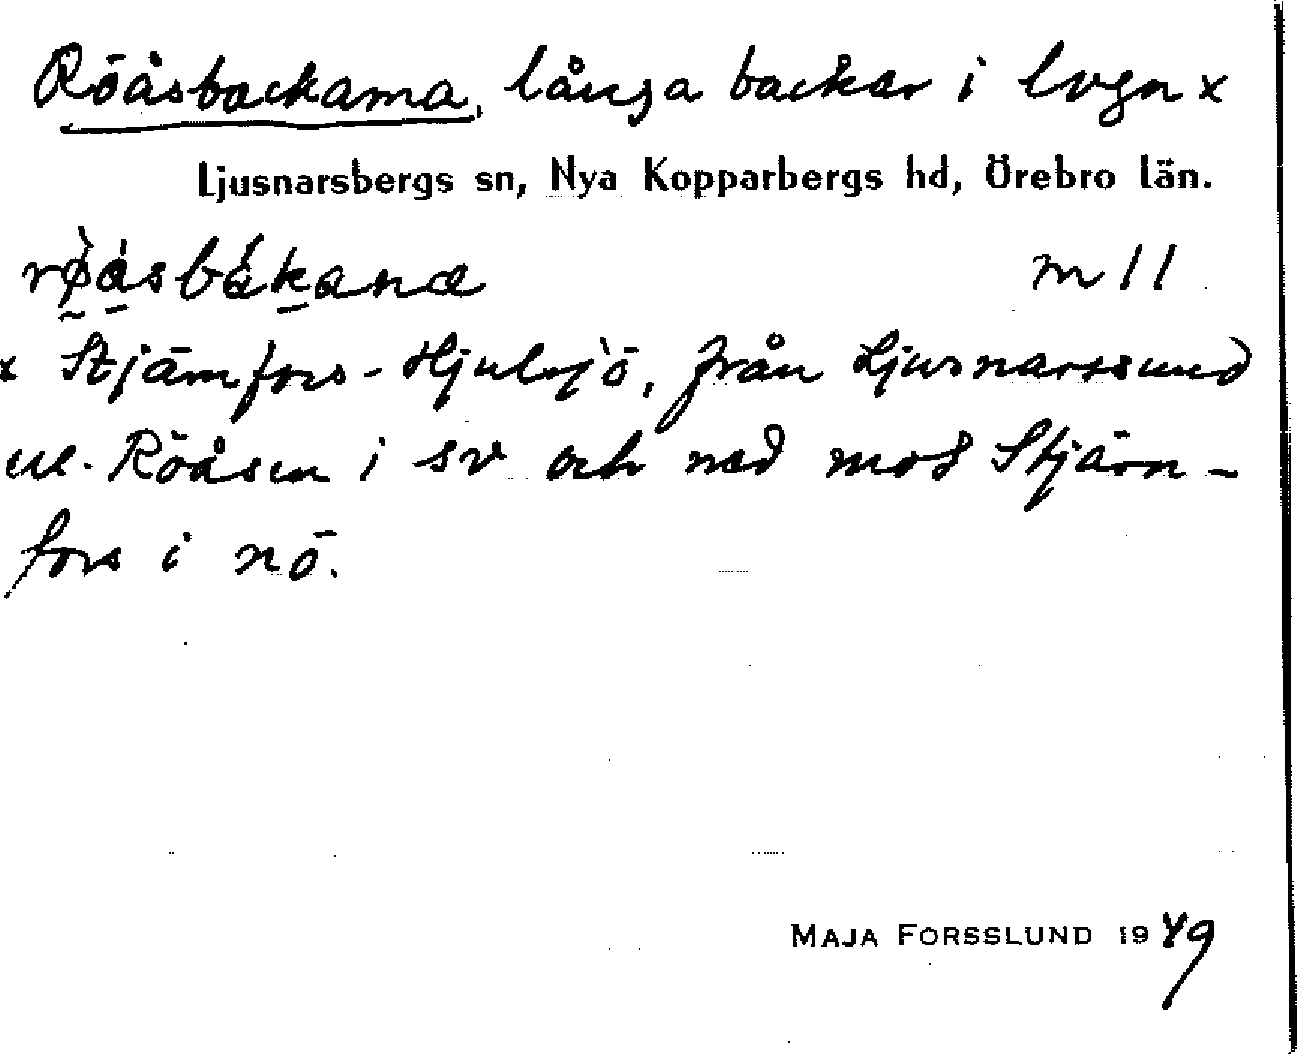 Röåsbackarna, långa backar i lvgn x
Ljusnarsbergs sn, Nya Kopparbergs hd, Örebro län.
rø̀ásbákana m 11
x Stjärnfors - Hjulsjö, från Ljusnarssund
ul. Röåsen i sv och ned mot Stjärn-
fors i nö.
MAJA FORSSLUND 1949